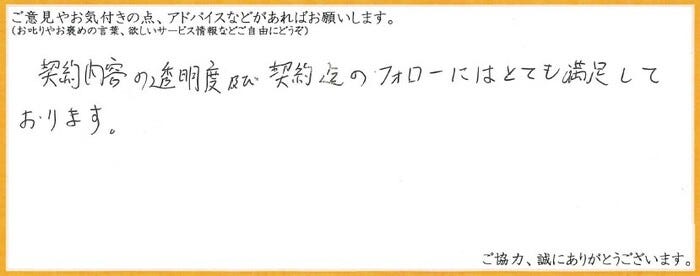 ご意見やお気付きの点、アドバイスなどがあればお願いします。
(お叱りやお褒めの言葉、欲しいサービス情報などご自由にどうぞ)
契約内容の透明度及び契約迄のフォローにはとても満足して
おります。
ご協力、誠にありがとうございます。